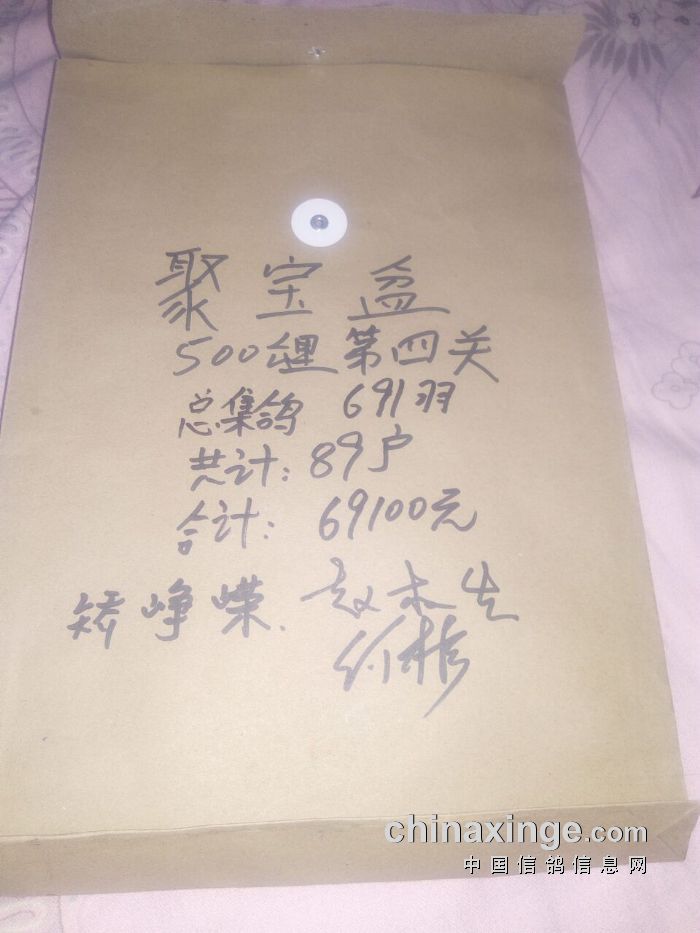 聚宝盆
500缰第四关
总集鸽 691羽
共计：89户
合计：69100元
矫峥嵘.
chinaxinge.com
中国信鸽信息网